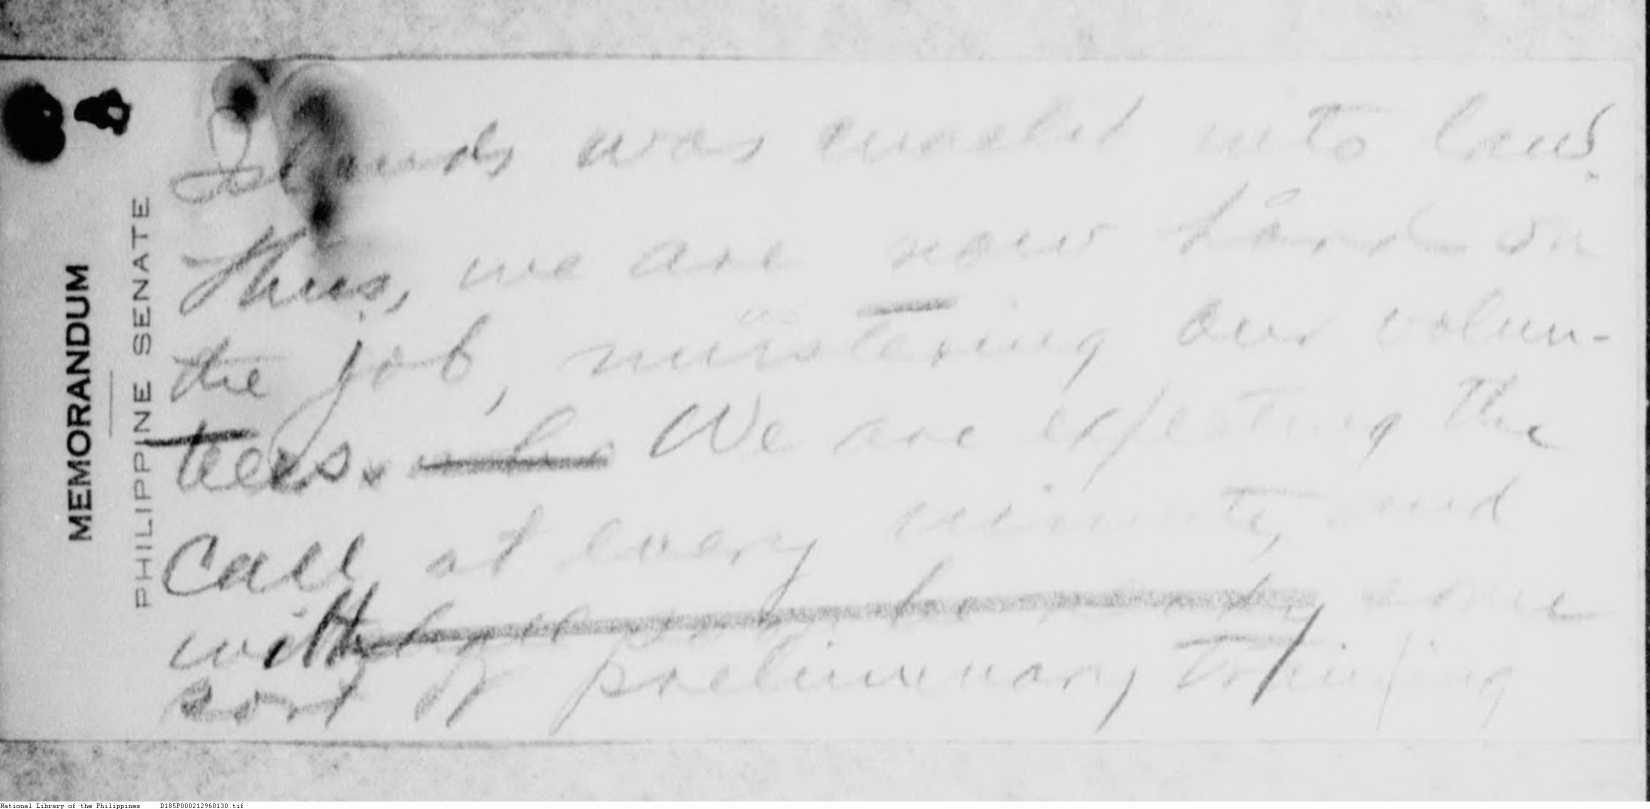 MEMORANDUM
PHILIPPINE SENATE
Islands was enacted into law.
Thus, we are now hard on
the job, mustering our volun-
teers. We are expecting the
call, at every minute, and
with some
sort of preliminary training
National Library of the Philippines D185P000212960130.tif